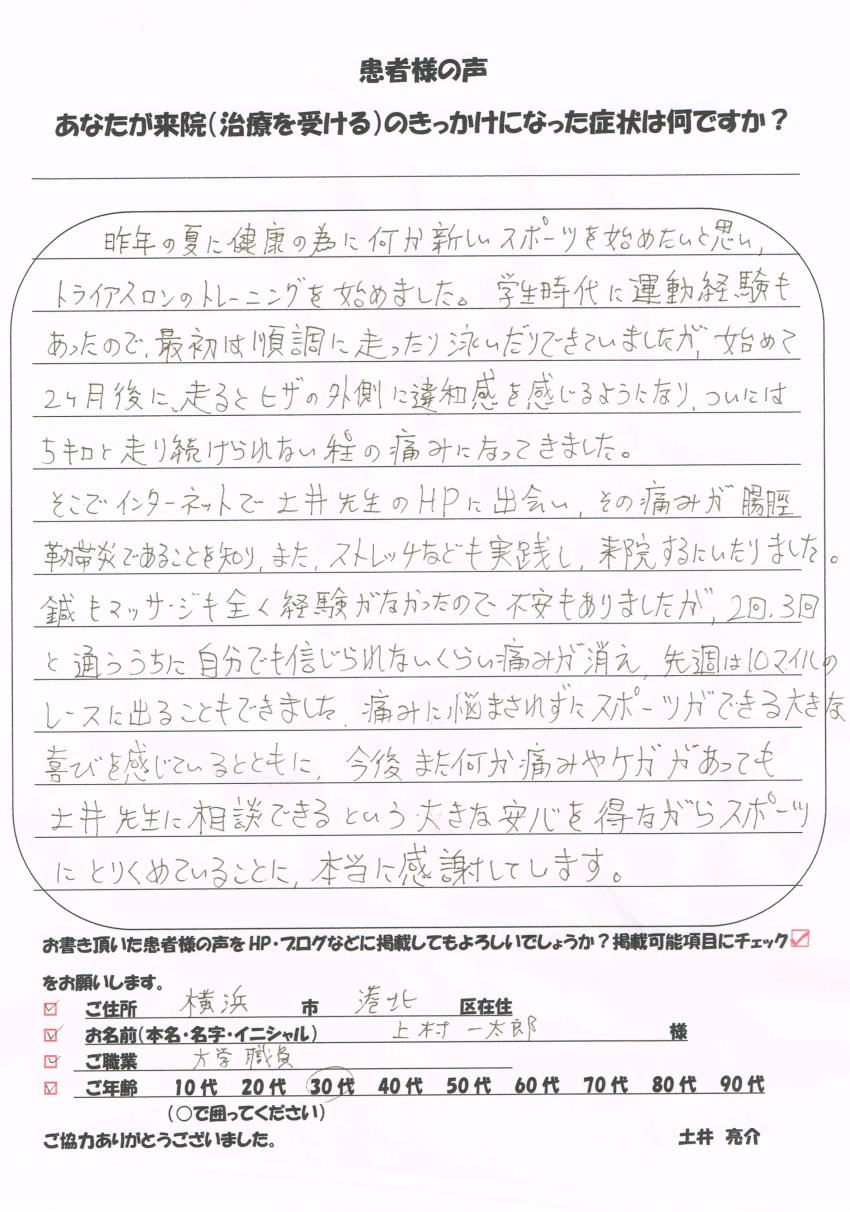 患者様の声
あなたが来院(治療を受ける)のきっかけになった症状は何ですか？
昨年の夏に健康の為に何か新しいスポーツを始めたいと思い,
トライアスロンのトレーニングを始めました。学生時代に運動経験も
あったので,最初は順調に走ったり泳いだりできていましたが,始めて
2ヶ月後に、走るとヒザの外側に違和感を感じるようになり,ついには
5キロと走り続けられない程の痛みになってきました。
そこでインターネットで土井先生のHPに出会い,その痛みが腸脛
靭帯炎であることを知り,また,ストレッチなども実践し,来院するにいたりました。
鍼もマッサージも全く経験がなかったので不安もありましたが,2回.3回
と通ううちに自分でも信じられないくらい痛みが消え,先週は10マイルの
レースに出ることもできました.痛みに悩まされずにスポーツができる大きな
喜びを感じているとともに,今後また何か痛みやケガがあっても
土井先生に相談できるという大きな安心を得ながらスポーツ
にとりくめていることに,本当に感謝してします。
お書き頂いた患者様の声をHP・ブログなどに掲載してもよろしいでしょうか？掲載可能項目にチェック☑
をお願いします。
☑ ご住所 横浜 市 港北 区在住
☑ お名前(本名・名字・イニシャル) 上村 一太郎 様
☑ ご職業 大学職員
☑ ご年齢 10代 20代 30代 40代 50代 60代 70代 80代 90代
(○で囲ってください)
ご協力ありがとうございました。 土井 亮介